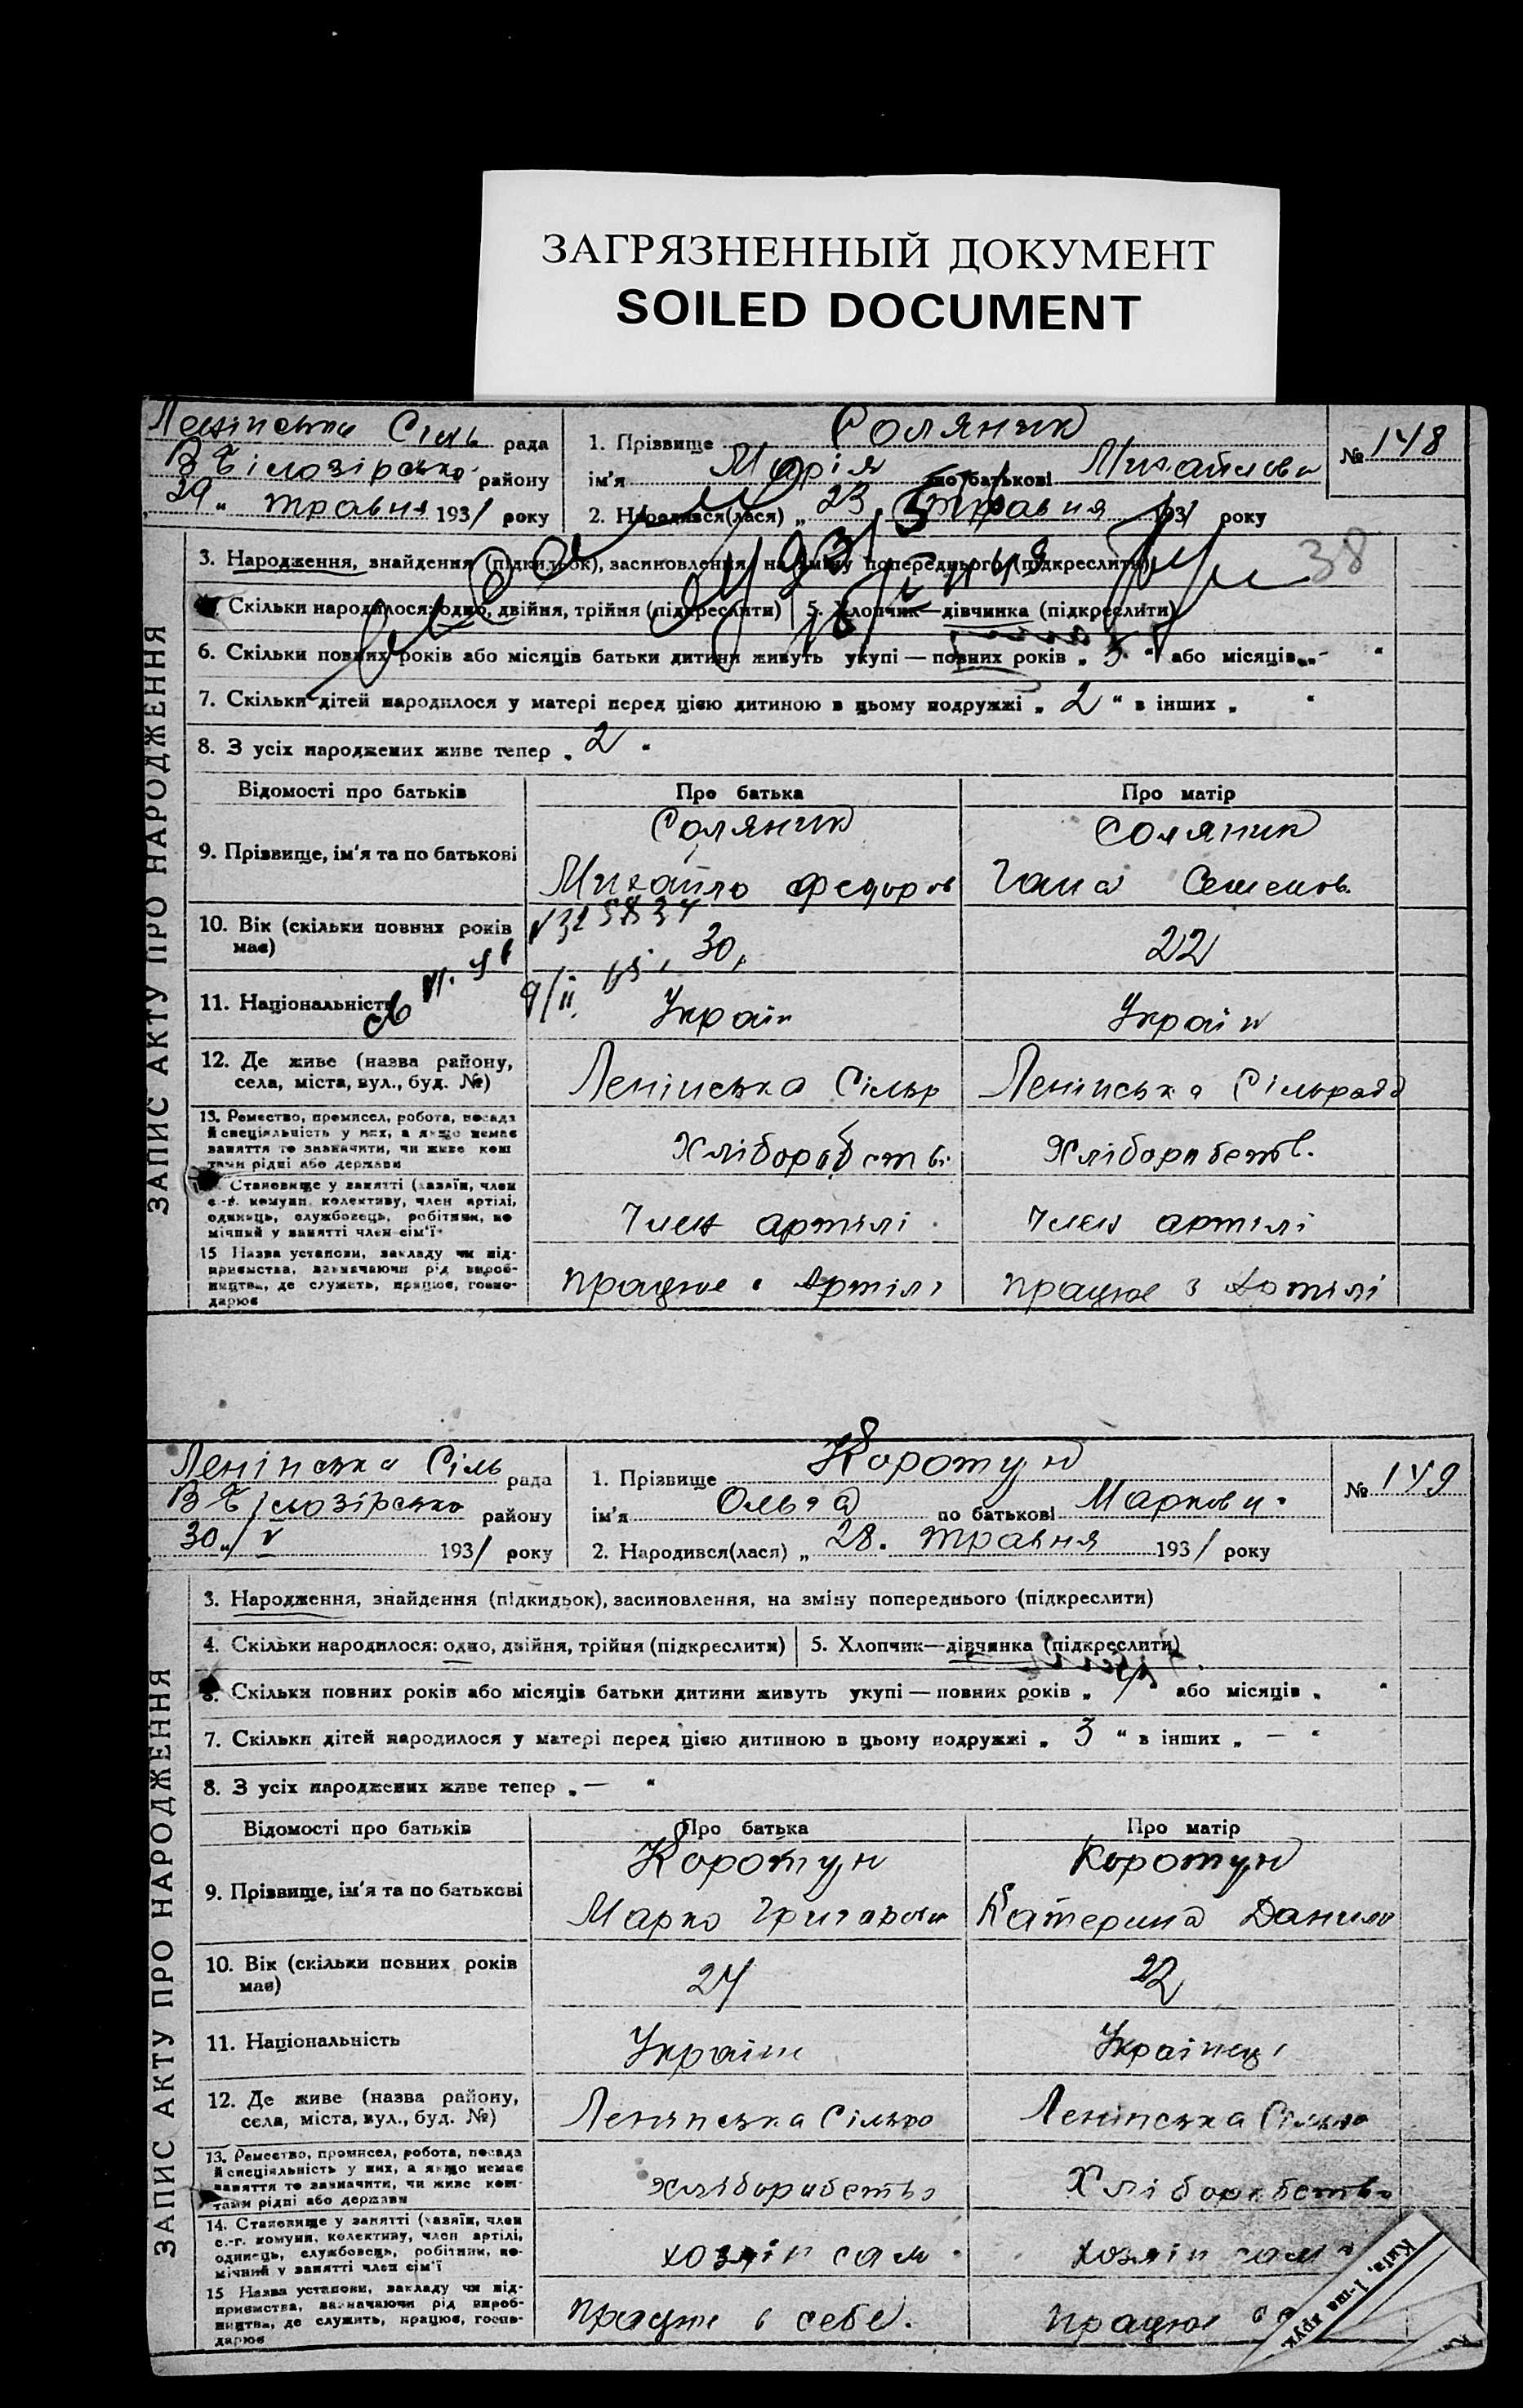 ЗАГРЯЗНЕННЫЙ ДОКУМЕНТ
SOILED DOCUMENT
Ленінська Сіль рада
В Білозірсько району
29 „ травня 1931 року
1. Прізвище Соляник
ім'я Марія по батькові Михайлова
2. Народився(лася) „ 23 травня 1931 року
№ 148
38
ЗАПИС АКТУ ПРО НАРОДЖЕННЯ
3. Народження, знайдення (підкидьок), засиновлення, на зміну попереднього (підкреслити)
Скільки народилося: одно, двійня, трійня (підкреслити) 5. Хлопчик—дівчинка (підкреслити)
6. Скільки повних років або місяців батьки дитини живуть укупі — повних років „ 5 “ або місяців „ – “
7. Скільки дітей народилося у матері перед цією дитиною в цьому подружжі „ 2 “ в інших „ “
8. З усіх народжених живе тепер „ 2 “
Відомості про батьків Про батька Про матір
9. Прізвище, ім'я та по батькові
Соляник
Михайло Федоров
Соляник
Гана Семенов.
10. Вік (скільки повних років має) 30 22
11. Національність Украін Украін
12. Де живе (назва району, села, міста, вул., буд. №) Ленінська Сільр Ленінська Сільрада
13. Ремество, промисел, робота, посада
й спеціяльність у них, а якщо немає
заняття то зазначити, чи живе кош
тами рідні або держави
Хлібороб ств. Хлібороbств.
Становище у занятті (хазяїн, член
с.-г. комуни, колективу, член артілі,
одинець, службовець, робітник, по
мічний у занятті член сім'ї
Член артілі Член артілі
15 Назва установи, закладу чи під-
приємства, зазначаючи рід вироб-
ництва, де служить, працює, госпо-
дарює
працює в Артілі працює в Артілі
Ленінська Сіль рада
В Білозірсько району
30 / V 1931 року
1. Прізвище Коротун
ім'я Ольга по батькові Маркови.
2. Народився(лася) „ 28. травня 1931 року
№ 149
ЗАПИС АКТУ ПРО НАРОДЖЕННЯ
3. Народження, знайдення (підкидьок), засиновлення, на зміну попереднього (підкреслити)
4. Скільки народилося: одно, двійня, трійня (підкреслити) 5. Хлопчик—дівчинка (підкреслити)
Скільки повних років або місяців батьки дитини живуть укупі — повних років „ “ або місяців „ “
7. Скільки дітей народилося у матері перед цією дитиною в цьому подружжі „ 3 “ в інших „ — “
8. З усіх народжених живе тепер „ — “
Відомості про батьків Про батька Про матір
9. Прізвище, ім'я та по батькові
Коротун
Марко Григорови
Коротун
Катерина Данило
10. Вік (скільки повних років має) 24 22
11. Національність Украін Украінец
12. Де живе (назва району, села, міста, вул., буд. №) Ленінська Сільро Ленінська
13. Ремество, промисел, робота, посада
й спеціяльність у них, а якщо немає
заняття то зазначити, чи живе кош-
тами рідні або держави
хліборобство Хліборобство
14. Становище у занятті (хазяїн, член
с.-г. комуни, колективу, член артілі,
одинець, службовець, робітник, по-
мічний у занятті член сім'ї
хозяін сам хозяін сам
15 Назва установи, закладу чи під-
приємства, зазначаючи рід вироб-
ництва, де служить, працює, госпо-
дарює
працює в себе. працює
Київ, 1-ша друк.